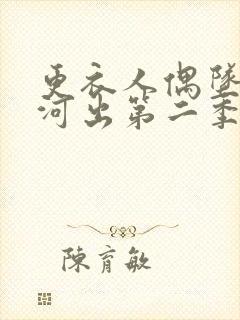 更衣人偶墜
河出第二季
陳育敏